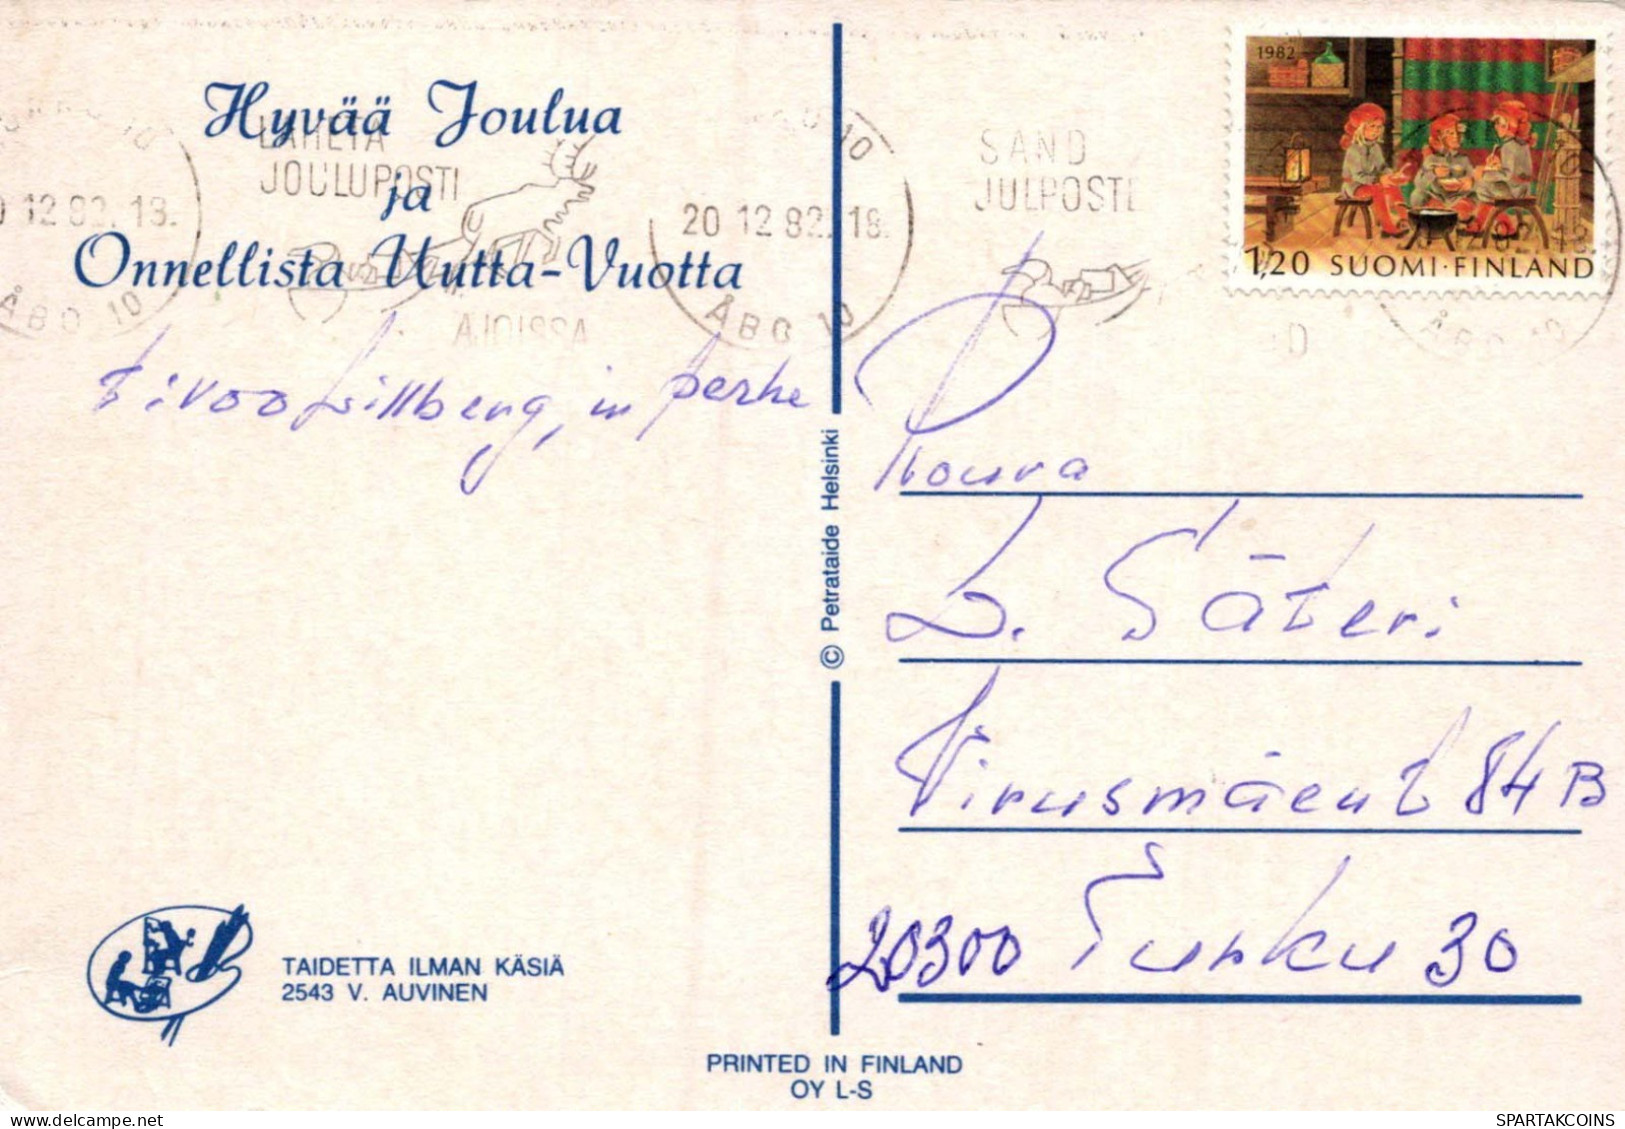 Hyvää Joulua
ja
Onnellista Uutta-Vuotta
LÄHETÄ
JOULUPOSTI
AJOISSA
20 12 82. 18.
ÅBO 10
SÄND
JULPOSTE
1982
1,20 SUOMI·FINLAND
20 12 82. 18
ÅBO 10
perhe
Rouva
Säteri
84 B
20300 Turku 30
© Petrataide Helsinki
TAIDETTA ILMAN KÄSIÄ
2543 V. AUVINEN
PRINTED IN FINLAND
OY L-S
SPARTAKCOINS